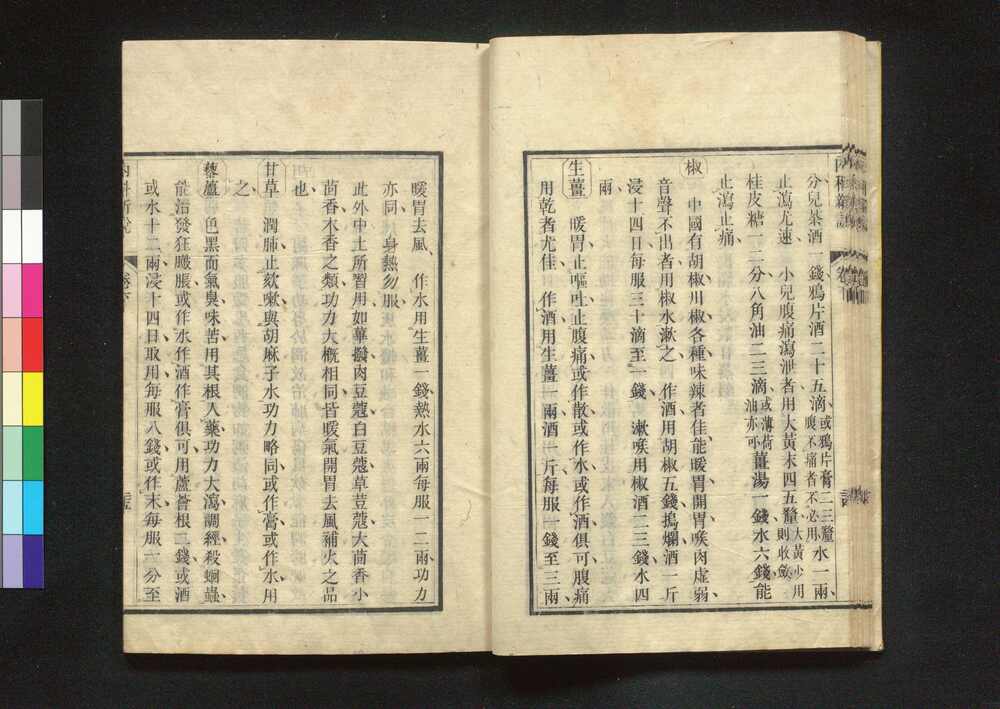 分兒茶酒一錢鴉片酒二十五滴或鴉片膏二三釐腹不痛者不必用水一兩
止瀉尤速 小兒腹痛瀉泄者用大黃末四五釐大黃少用則收斂
桂皮糖一二分八角油二三滴或薄荷油亦可薑湯一錢水六錢能
止瀉止痛
椒 中國有胡椒川椒各種味辣者佳能暖胃開胃喉肉虛弱
音聲不出者用椒水漱之 作酒用胡椒五錢搗爛酒一斤
浸十四日每服三十滴至一錢 漱喉用椒酒二三錢水四
兩
生薑 暖胃止嘔吐止腹痛或作散或作水或作酒俱可腹痛
用乾者尤佳 作酒用生薑二兩酒一斤每服一錢至三兩
暖胃去風 作水用生薑一錢熱水六兩每服一二兩功力
亦同 身熱勿服
此外中土所習用如華撥肉豆蔻白豆蔻草荳蔻大茴香小
茴香木香之類功力大概相同皆暖氣開胃去風補火之品
也
甘草 潤肺止欬嗽與胡麻子水功力略同或作膏或作水用
之
藜蘆 色黑而氣臭味苦用其根入藥功力大瀉調經殺蛔蟲
能治發狂臌脹或作水作酒作膏俱可用蘆薈根二錢或酒
或水十二兩浸十四日取用每服八錢或作末每服六分至
內科新說
卷下